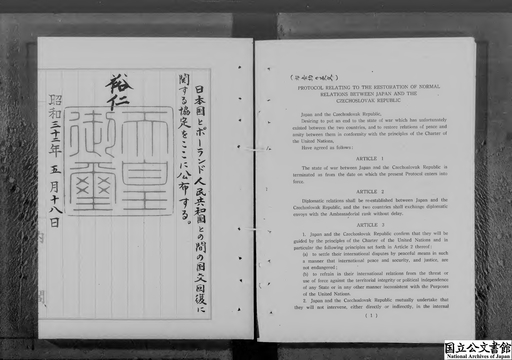 日本国とポーランド人民共和国との間の国交回復に
関する協定をここに公布する。
裕仁
天皇
御璽
昭和三十二年五月十八日
PROTOCOL RELATING TO THE RESTORATION OF NORMAL
RELATIONS BETWEEN JAPAN AND THE
CZECHOSLOVAK REPUBLIC
Japan and the Czechoslovak Republic,
Desiring to put an end to the state of war which has unfortunately
existed between the two countries, and to restore relations of peace and
amity between them in conformity with the principles of the Charter of
the United Nations,
Have agreed as follows:
ARTICLE 1
The state of war between Japan and the Czechoslovak Republic is
terminated as from the date on which the present Protocol enters into
force.
ARTICLE 2
Diplomatic relations shall be re-established between Japan and the
Czechoslovak Republic, and the two countries shall exchange diplomatic
envoys with the Ambassadorial rank without delay.
ARTICLE 3
1. Japan and the Czechoslovak Republic confirm that they will be
guided by the principles of the Charter of the United Nations and in
particular the following principles set forth in Article 2 thereof:
(a) to settle their international disputes by peaceful means in such
a manner that international peace and security, and justice, are
not endangered;
(b) to refrain in their international relations from the threat or
use of force against the territorial integrity or political independence
of any State or in any other manner inconsistent with the Purposes
of the United Nations.
2. Japan and the Czechoslovak Republic mutually undertake that
they will not intervene, either directly or indirectly, in the internal
( 1 )
国立公文書館
National Archives of Japan